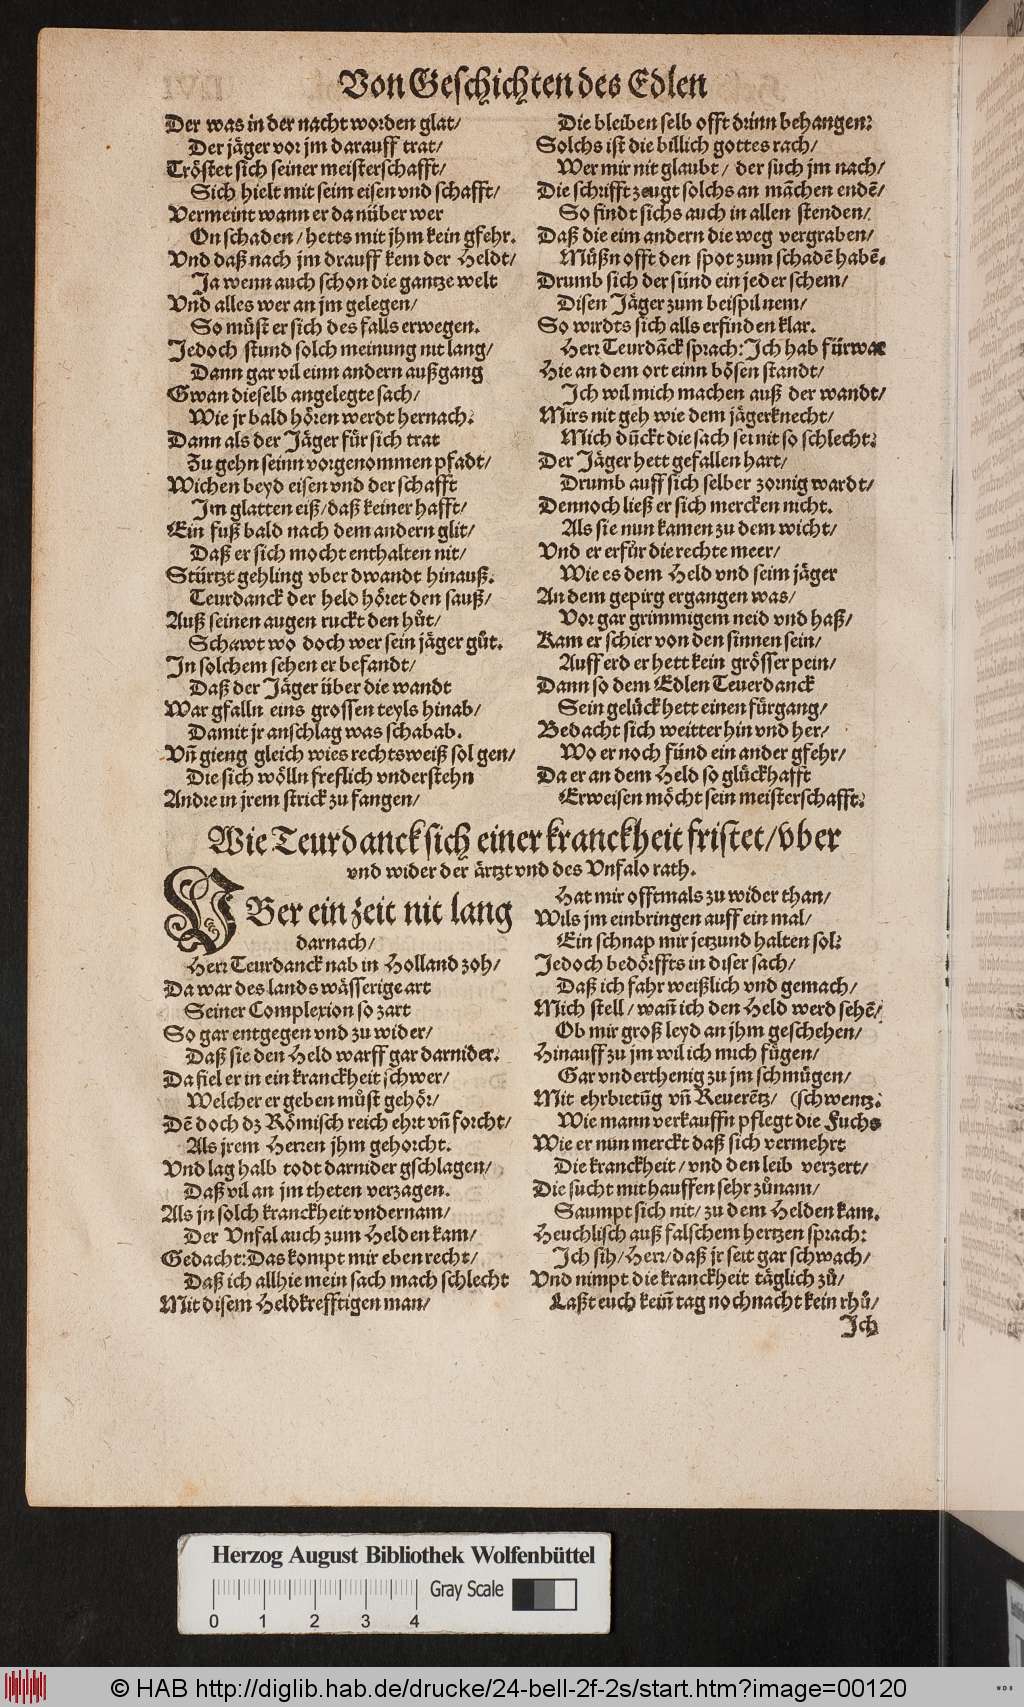 Von Geschichten des Edlen
Der was in der nacht worden glat/
Der jäger vor jm darauff trat/
Tröstet sich seiner meisterschafft/
Sich hielt mit seim eisen vnd schafft/
Vermeint wann er da nüber wer
On schaden/ hetts mit jhm kein gfehr.
Vnd daß nach jm drauff kem der Heldt/
Ja wenn auch schon die gantze welt
Vnd alles wer an jm gelegen/
So müst er sich des falls erwegen.
Jedoch stund solch meinung nit lang/
Dann gar vil einn andern außgang
Gwan dieselb angelegte sach/
Wie jr bald hören werdt hernach.
Dann als der Jäger für sich trat
Zu gehn seinn vorgenommen pfadt/
Wichen beyd eisen vnd der schafft
Im glatten eiß/ daß keiner hafft/
Ein fuß bald nach dem andern glit/
Daß er sich mocht enthalten nit/
Stürtzt gehling vber dwandt hinauß.
Teurdanck der held höret den sauß/
Auß seinen augen ruckt den hůt/
Schawt wo doch wer sein jäger gůt.
In solchem sehen er befandt/
Daß der Jäger über die wandt
War gfalln eins grossen teyls hinab/
Damit jr anschlag was schabab.
Vñ gieng gleich wies rechtsweiß sol gen/
Die sich wölln freflich vnderstehn
Andre in jrem strick zu fangen/
Die bleiben selb offt drinn behangen:
Solchs ist die billich gottes rach/
Wer mir nit glaubt/ der such jm nach/
Die schrifft zeugt solchs an mãchen endẽ/
So findt sichs auch in allen stenden/
Daß die eim andern die weg vergraben/
Müßn offt den spot zum schadẽ habẽ.
Drumb sich der sünd ein jeder schem/
Disen Jäger zum beispil nem/
So wirdts sich alls erfinden klar.
Herr Teurdãck sprach: Ich hab fürwar
Hie an dem ort einn bösen standt/
Ich wil mich machen auß der wandt/
Mirs nit geh wie dem jägerknecht/
Mich dũckt die sach sei nit so schlecht:
Der Jäger hett gefallen hart/
Drumb auff sich selber zornig wardt/
Dennoch ließ er sich mercken nicht.
Als sie nun kamen zu dem wicht/
Vnd er erfůr die rechte meer/
Wie es dem Held vnd seim jäger
An dem gepirg ergangen was/
Vor gar grimmigem neid vnd haß/
Kam er schier von den sinnen sein/
Auff erd er hett kein grösser pein/
Dann so dem Edlen Teuerdanck
Sein gelück hett einen fürgang/
Bedacht sich weitter hin vnd her/
Wo er noch fünd ein ander gfehr/
Da er an dem Held so glückhafft
Erweisen möcht sein meisterschafft.
Wie Teurdanck sich einer kranckheit fristet/ vber
vnd wider der ärtzt vnd des Vnfalo rath.
VBer ein zeit nit lang
darnach/
Herr Teurdanck nab in Holland zoh/
Da war des lands wässerige art
Seiner Complexion so zart
So gar entgegen vnd zu wider/
Daß sie den Held warff gar darnider.
Da fiel er in ein kranckheit schwer/
Welcher er geben můst gehör/
Dẽ doch dz Römisch reich ehrt vñ forcht/
Als jrem Herren jhm gehorcht.
Vnd lag halb todt darnider gschlagen/
Daß vil an jm theten verzagen.
Als jn solch kranckheit vndernam/
Der Vnfal auch zum Helden kam/
Gedacht: Das kompt mir eben recht/
Daß ich allhie mein sach mach schlecht
Mit disem Held krefftigen man/
Hat mir offtmals zu wider than/
Wils jm einbringen auff ein mal/
Ein schnap mir jetzund halten sol:
Jedoch bedörffts in diser sach/
Daß ich fahr weißlich vnd gemach/
Mich stell/ wañ ich den Held werd sehẽ/
Ob mir groß leyd an jhm geschehen/
Hinauff zu jm wil ich mich fügen/
Gar vnderthenig zu jm schmügen/
Mit ehrbietũg vñ Reuerẽtz/ (schwentz.
Wie mann verkauffn pflegt die Fuchs
Wie er nun merckt daß sich vermehrt
Die kranckheit/ vnd den leib verzert/
Die sucht mit hauffen sehr zůnam/
Saumpt sich nit/ zu dem Helden kam.
Heuchlisch auß falschem hertzen sprach:
Ich sih/ Herr/ daß jr seit gar schwach/
Vnd nimpt die kranckheit täglich zů/
Laßt euch keiñ tag noch nacht kein rhů/
Ich
Herzog August Bibliothek Wolfenbüttel
Gray Scale
0 1 2 3 4
© HAB http://diglib.hab.de/drucke/24-bell-2f-2s/start.htm?image=00120